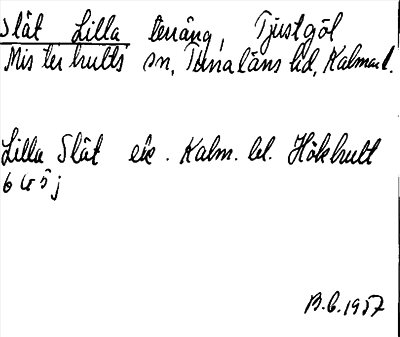 Slät Lilla terräng, Tjustgöl
Misterhults sn, Tunaläns hd, Kalmar l.
Lilla Slät ek. Kalm. bl. Hökhult
6 G 5 j
B.G. 1957